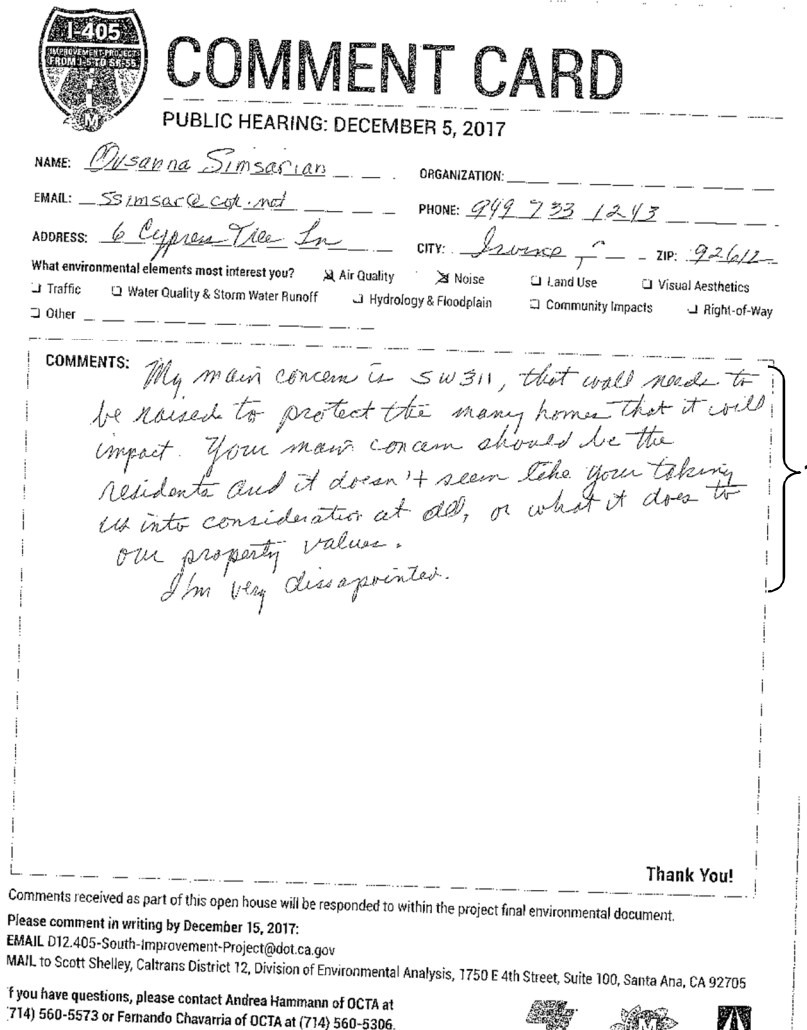 I-405
IMPROVEMENT PROJECT
FROM I-5 TO SR-55
COMMENT CARD
PUBLIC HEARING: DECEMBER 5, 2017
NAME: Ovsanna Simsarian ORGANIZATION:
EMAIL: ssimsar@cox.net PHONE: 949 733 1243
ADDRESS: 6 Cypress Tree Ln CITY: Irvine ZIP: 92612
What environmental elements most interest you? Air Quality Noise Land Use Visual Aesthetics
Traffic Water Quality & Storm Water Runoff Hydrology & Floodplain Community Impacts Right-of-Way
Other
COMMENTS: My main concern is SW311, that wall needs to
be raised to protect the many homes that it will
impact. Your main concern should be the
residents and it doesn't seem like your taking
us into consideration at all, or what it does to
our property values.
I'm very dissapointed.
Thank You!
Comments received as part of this open house will be responded to within the project final environmental document.
Please comment in writing by December 15, 2017:
EMAIL D12.405-South-Improvement-Project@dot.ca.gov
MAIL to Scott Shelley, Caltrans District 12, Division of Environmental Analysis, 1750 E 4th Street, Suite 100, Santa Ana, CA 92705
f you have questions, please contact Andrea Hammann of OCTA at
714) 560-5573 or Fernando Chavarria of OCTA at (714) 560-5306.